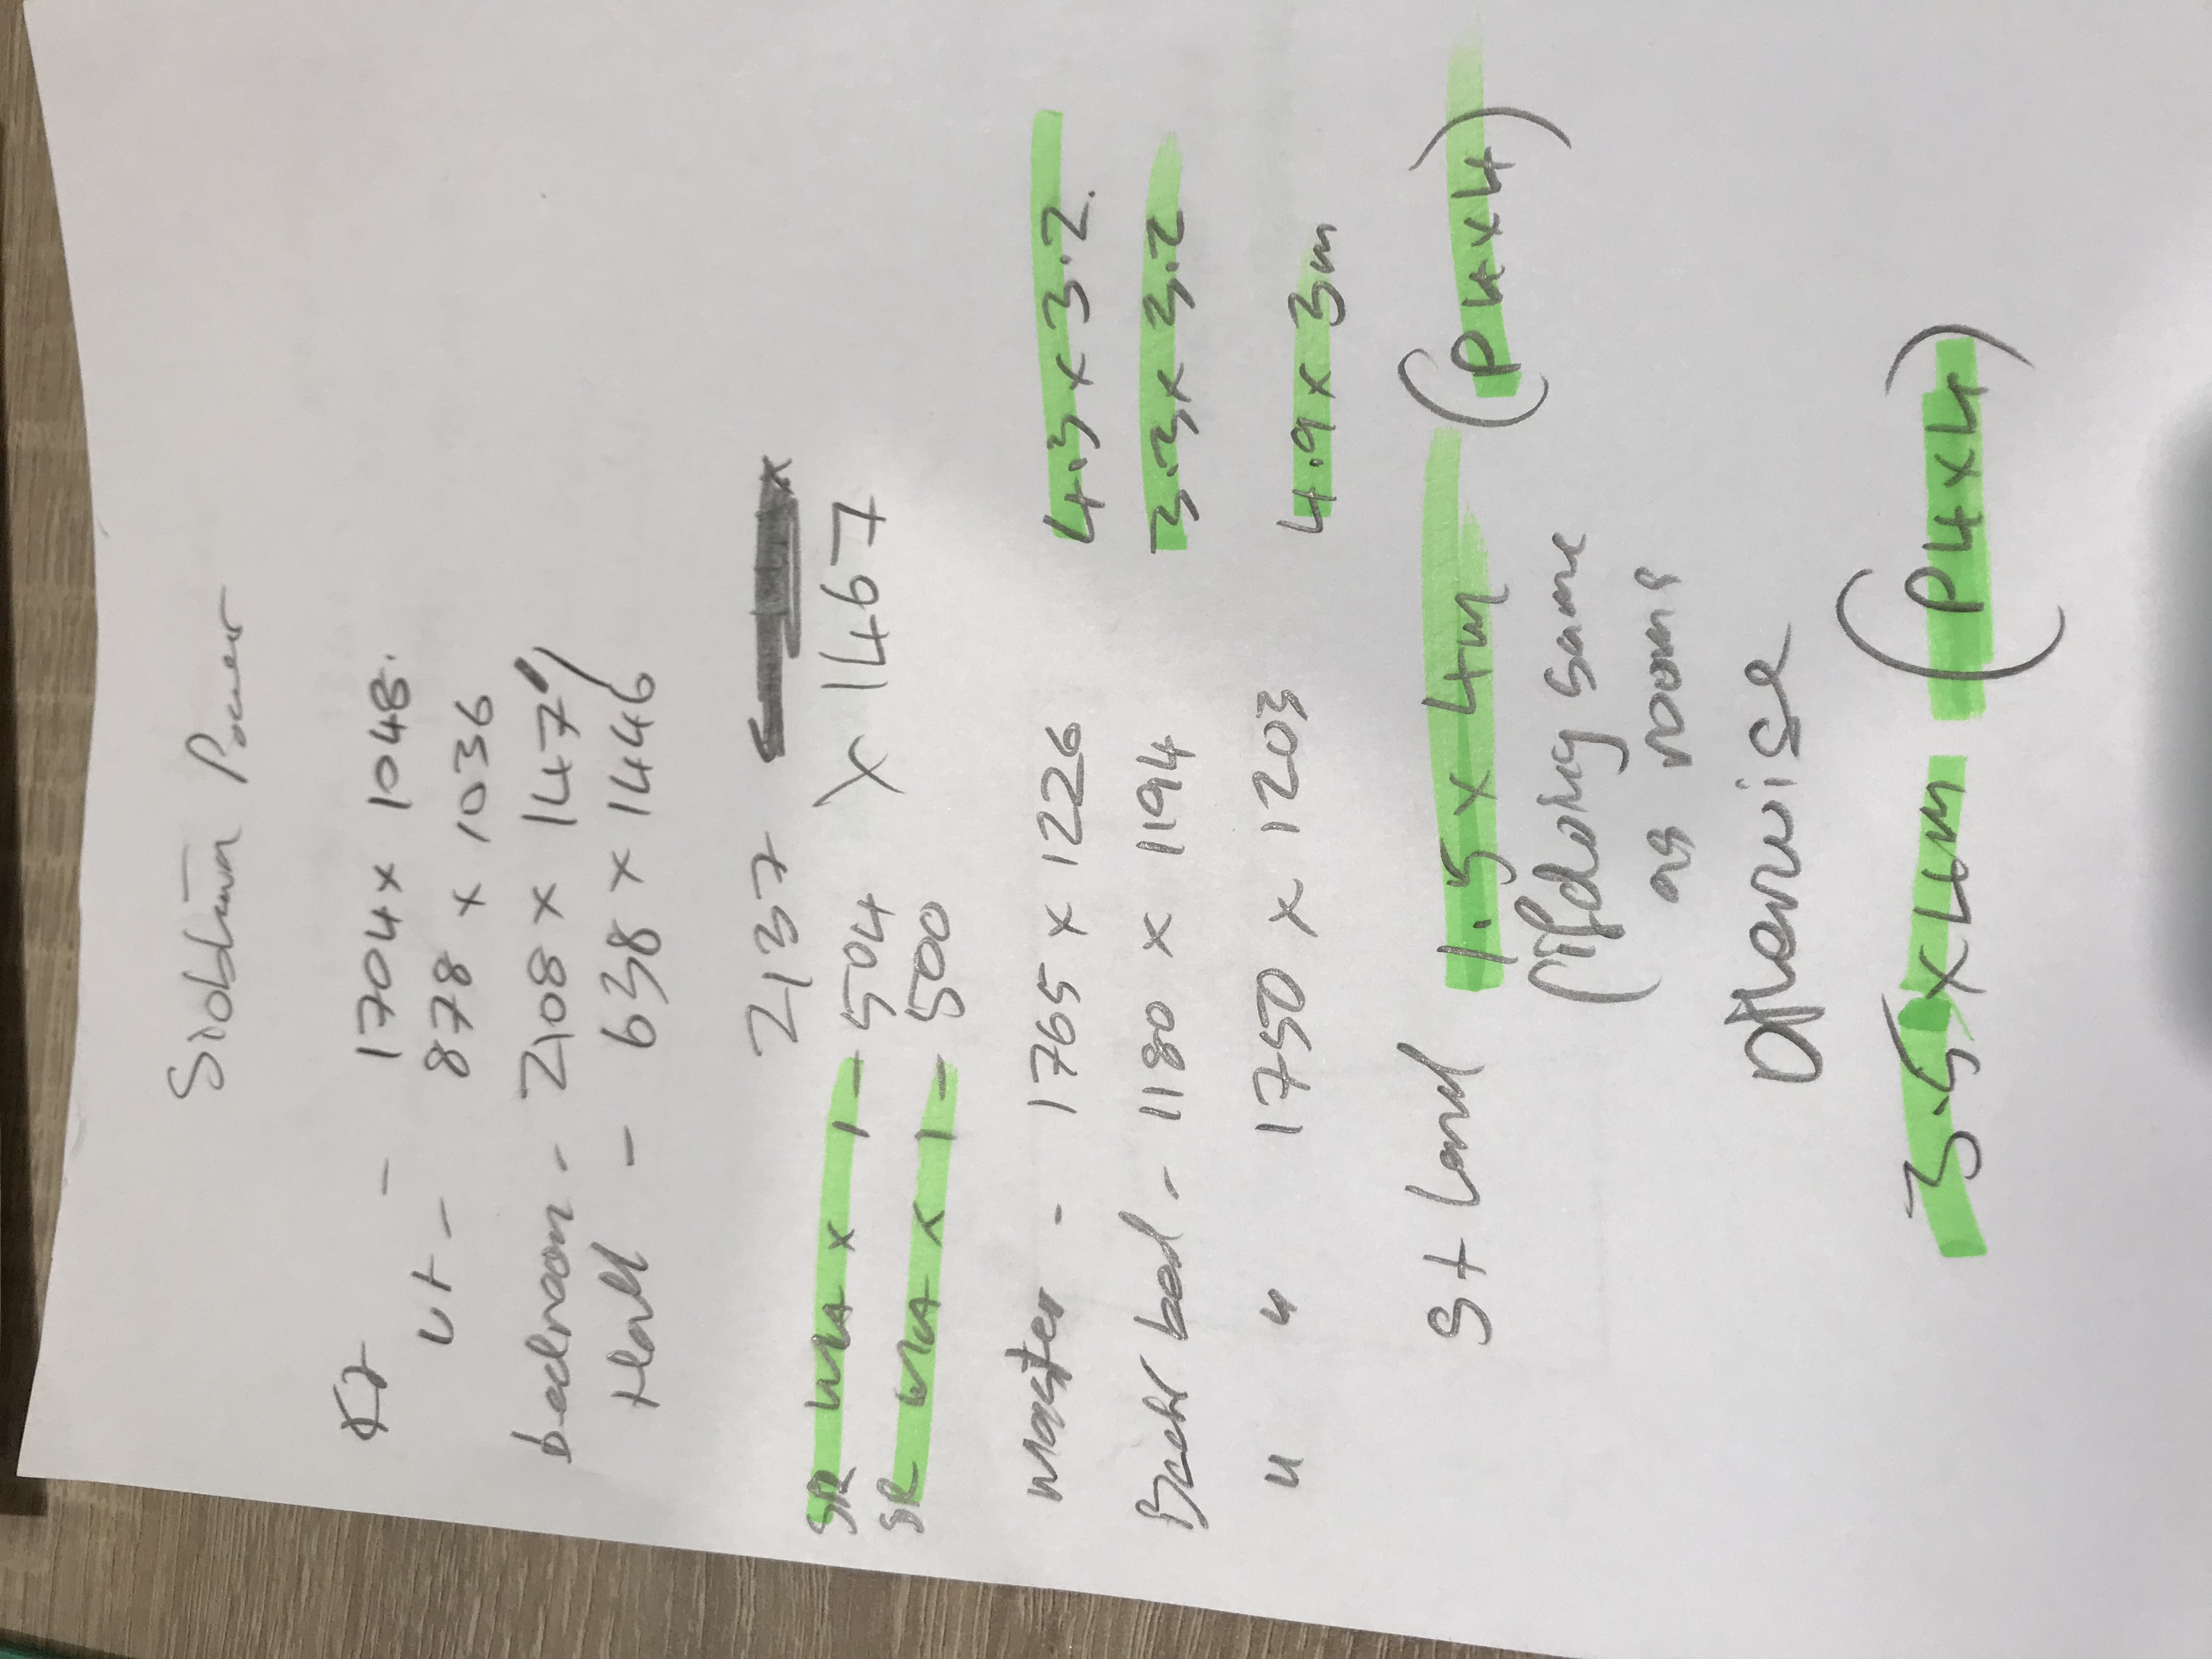 Siobhan Power
Kt - 1704 x 1048.
Ut - 878 x 1036
bedroom - 2108 x 147
Hall - 638 x 1446
2137 x 1467
SR x 1 - 504
SR x 1 - 500
Master - 1765 x 1226 4.3 x 3.2.
Back bed - 1180 x 1194 3.3 x 3.2
" " 1750 x 1203 4.9 x 3m
St Land 1.5 x 4m (P4x4)
(if doing same
as rooms
Otherwise
3.5 x 4m (P4x4)